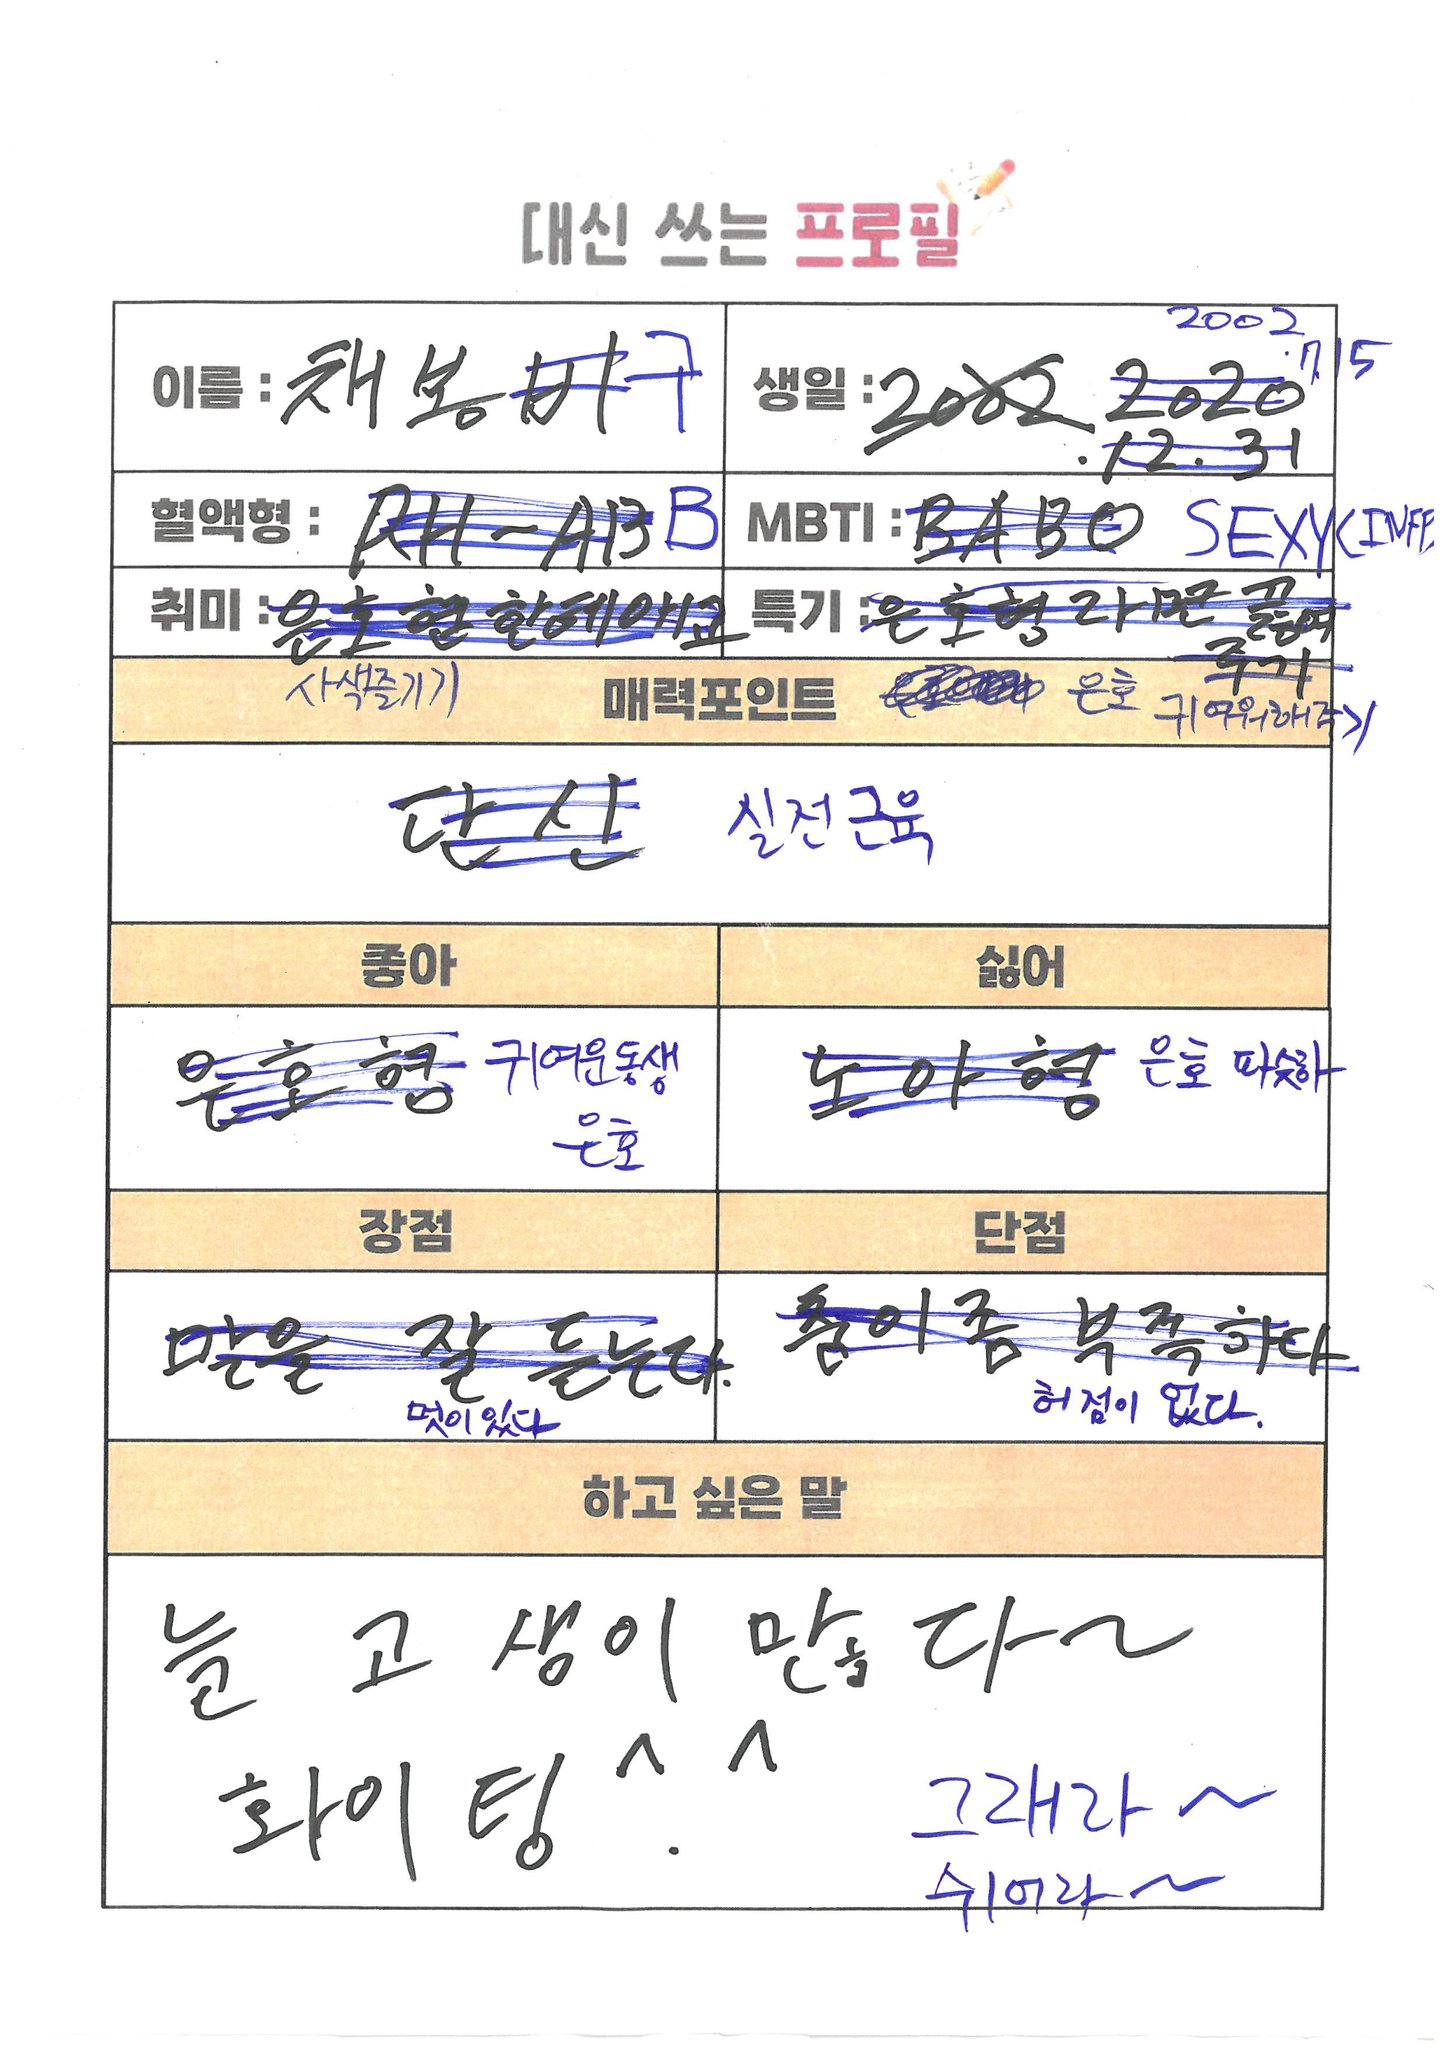 대신 쓰는 프로필
2002
이름 : 채봉비구 생일 : 2002. 2020 .7/5
.12.31
혈액형 : RH-AB B MBTI : BABO SEXY(INFE
취미 : 은호형한테애교 특기 : 은호형라면끓여
주기
사색즐기기 매력포인트 은호 귀여워해주기
단신 실전근육
좋아 싫어
은호형 귀여운동생 노아형 은호
은호
장점 단점
말을 잘 듣는다. 춤이좀 부족하다
멋이있다 허점이 없다.
하고 싶은 말
늘 고생이 많다~
화이팅^.^
그래라~
쉬어라~